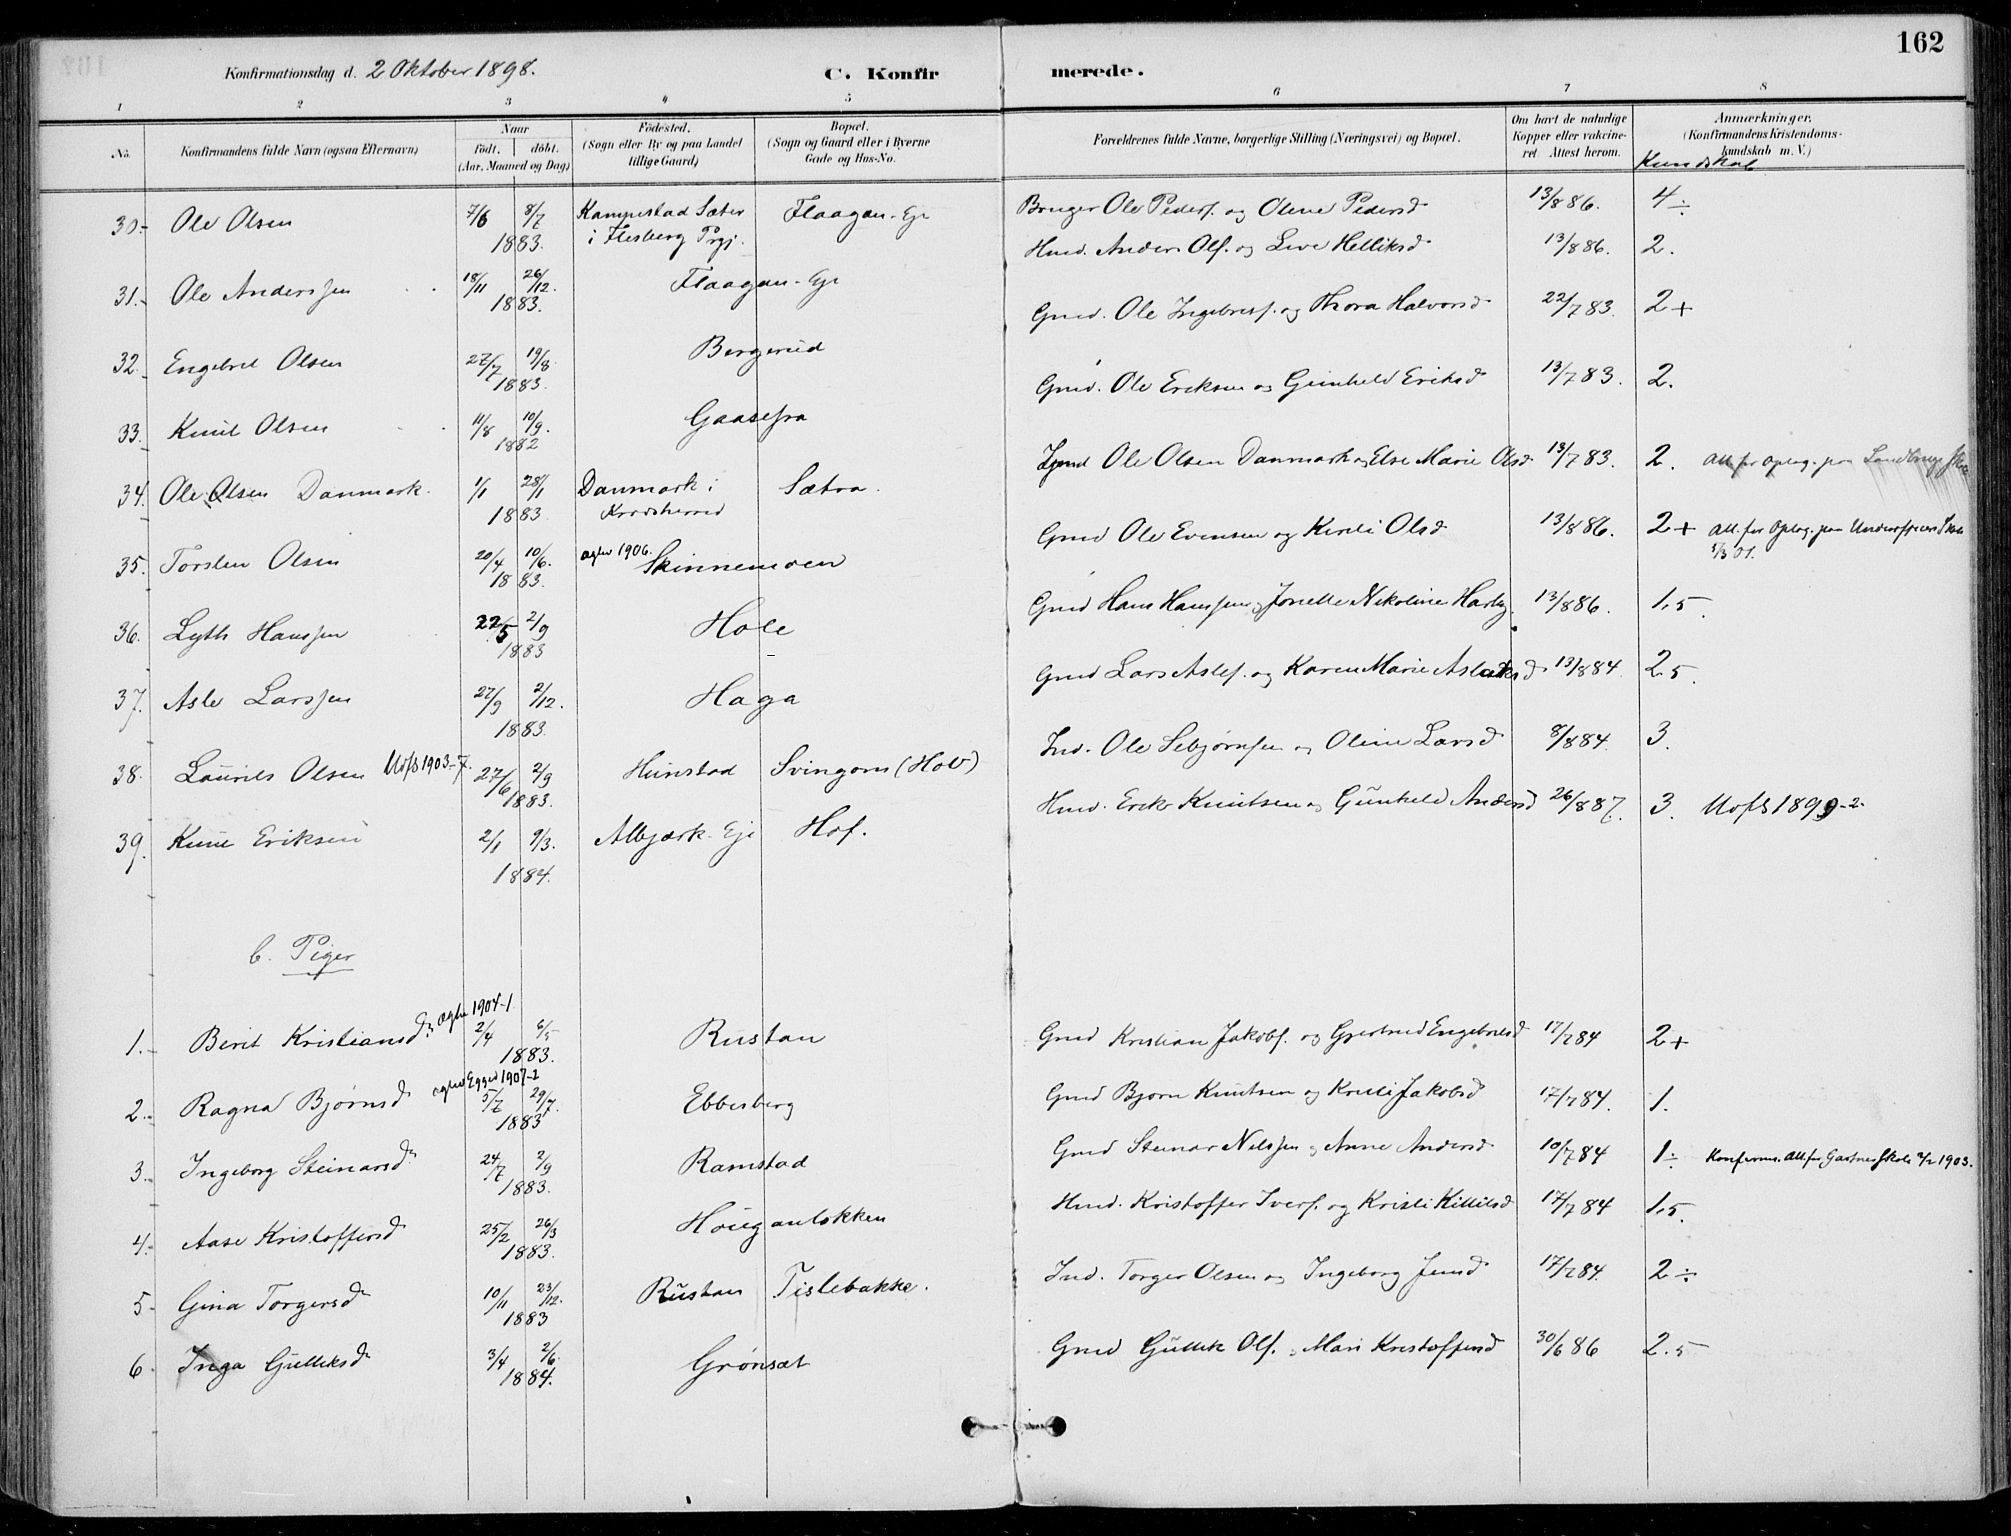 162
Konfirmationsdag d. 2 Oktober 1898.
C. Konfirmerede.
1 2 3 4 5 6 7 8
No. Konfirmandens fulde Navn (ogsaa Efternavn) Naar født, døbt. (Aar, Maaned og Dag) Fødested. (Sogn eller By og paa Landet tillige Gaard) Bopæl. (Sogn og Gaard eller i Byerne Gade og Hus-No. Forældrenes fulde Navne, borgerlige Stilling (Næringsvei) og Bopæl. Om havt de naturlige Kopper eller vakcineret. Attest herom. Anmærkninger. (Konfirmandens Kristendomskundskab m. V.)
Kundskab
30. Ole Olsen 7/6 8/7 1883. Kampestad Sæter i Flesberg Prgj. Flaagan-Eje Bruger Ole Peders. og Olene Pedersd 13/8 86. 4 ÷
31. Ole Anderssen 18/11 26/12. 1883. Flaagan-Eje Hmd. Anders Ols. og Live Helliksd 13/8 86. 2.
32. Engebret Olsen 27/7 19/8. 1883. Bergerud Gmd. Ole Ingebrets. og Thora Halvorsd 22/7 83. 2+
33. Knut Olsen 11/8 10/9. 1882 Gaasefra Gmd. Ole Eriksen og Gunhild Eriksd 13/7 83. 2.
34. Ole Olsen Danmark. 1/1 28/1 1883. Danmark i Krødsherred Sætra. Ole Olsen Danmark og Else Marie Olsd 13/7 83. 2. Att. for Optag. paa
35. Torsten Olsen 20/4 10/6. 1883. ægtev 1906. Skinnemoen Gmd Ole Evensen og Kirsti Olsd 13/8 86. 2+ Att. for Optag. paa 01.
36. Lyth Hanssen 22/5 2/9 1883 Hole Gmd Hans Hanssen og Jonette Nikoline 13/8 86. 1.5.
37. Asle Larssen 27/9 2/12. 1883. Haga Gmd Lars Asles. og Karen Marie Aslaksd 13/8 84. 2.5.
38. Laurits Olsen 1903-7. 27/6 2/9 1883. Hunstad Svingom (Hov) Ind. Ole Sebjørnsen og Oline Larsd 8/8 84. 3.
39. Knut Eriksen 2/1 9/3. 1884. Albjærk. Eje Hof. Hmd. Erik Knutsen og Gunhild Andersd 26/8 87. 3. 1899-2.
b. Piger
1. Berit Kristiansd. ægtev 1904-1 2/4 6/5 1883. Rustan Gmd Kristian Jakobs. og Gjertrud Engebretsd 17/7 84 2+
2. Ragna Bjørnsd ægtev Egged 1907-2 5/7 29/7. 1883 Ebbesberg Gmd Bjørn Knutsen og Kristi Jakobsd 17/7 84. 1.
3. Ingeborg Steinarsd 24/7 2/9 1883. Ramstad Gmd Steinar Nilssen og Anne Andersd 10/7 84 1÷ Konfirm. Att. for Gartnerskole 1903.
4. Aase Kristoffersd 25/2 26/3 1883. Houganløkken Hmd. Kristoffer Ivers. og Kristi Killilsd 17/7 84 1.5.
5. Gina Torgersd 10/11 23/12. 1883 Rustan Tislebakke. Ind. Torger Olsen og Ingeborg Jensd 17/7 84. 2÷
6. Inga Gulliksd 3/4 2/6. 1884. Grønsæt Gmd Gullik Ols. Mari Kristoffersd 30/6 86 2.5